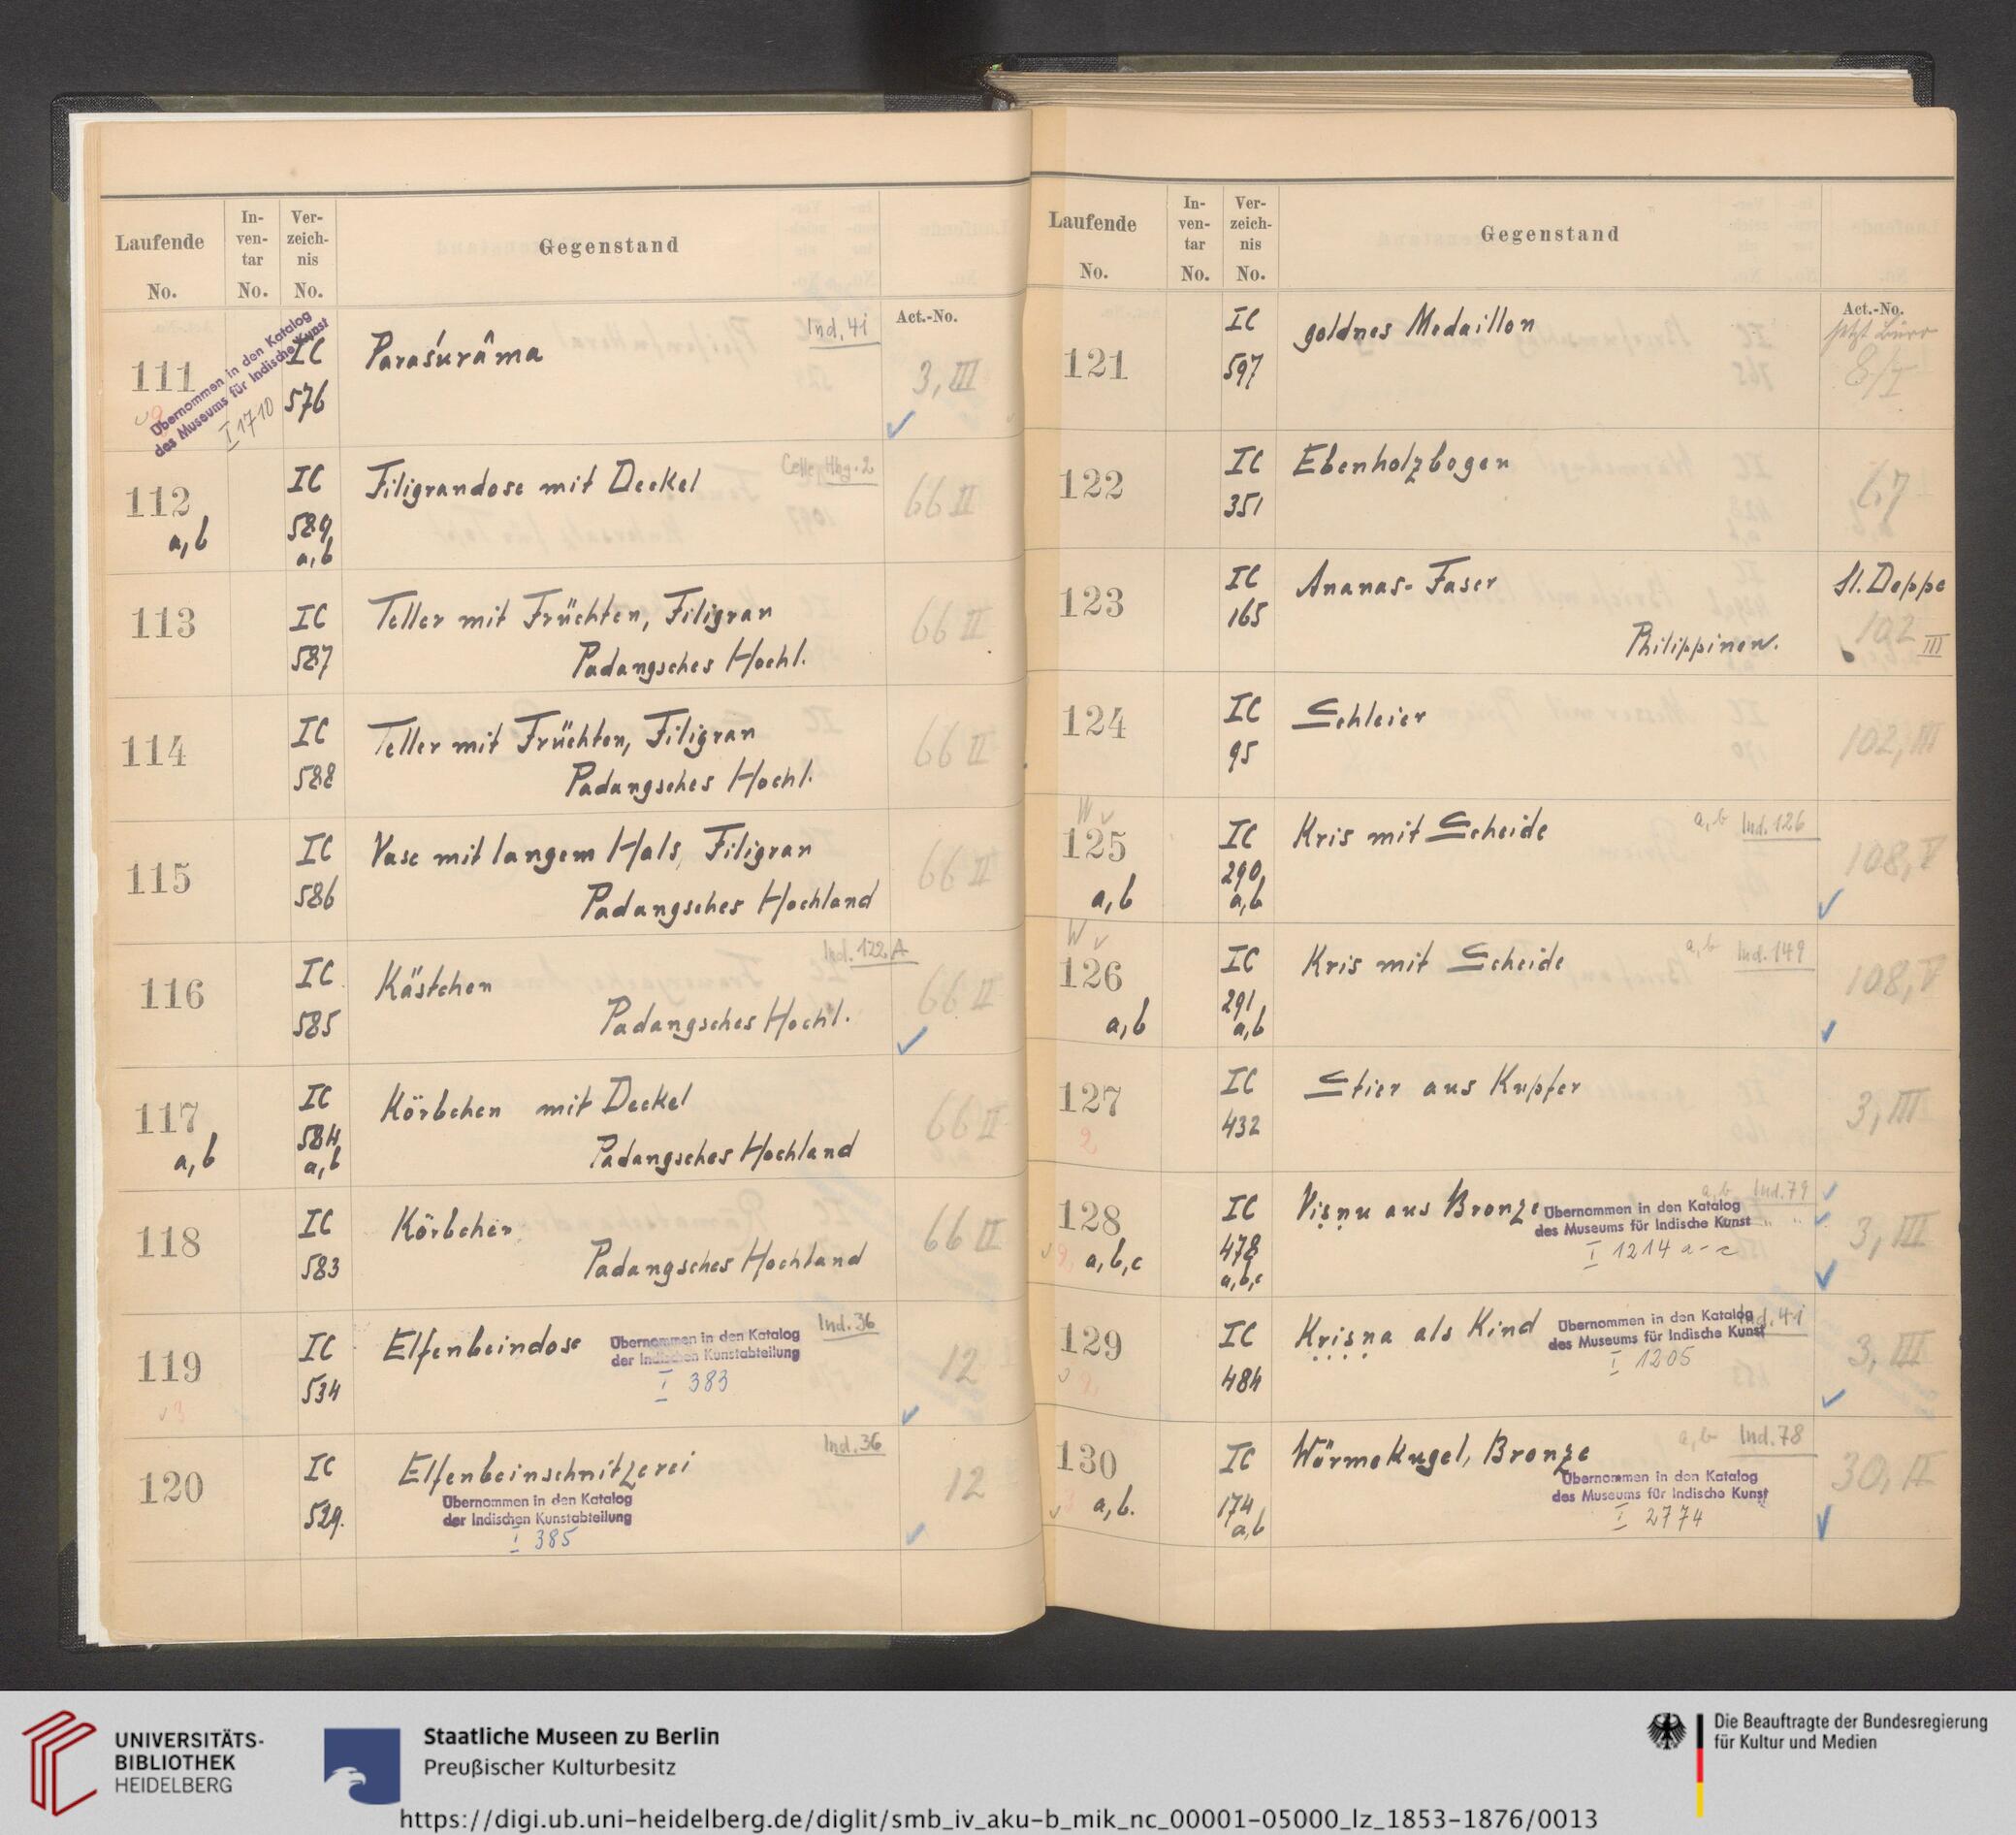 Laufende
No.
In-
ven-
tar
No.
Ver-
zeich-
nis
No.
Gegenstand
Act.-No.
111
Übernommen in den Katalog
des Museums für Indische Kunst
I 1710
IC
576
Paraśurâma
Ind. 41
3, III
112
a, b
IC
589,
a, b
Filigrandose mit Deckel
66 II
113
IC
587
Teller mit Früchten, Filigran
Padangsches Hochl.
66 II
114
IC
588
Teller mit Früchten, Filigran
Padangsches Hochl.
66 II
115
IC
586
Vase mit langem Hals, Filigran
Padangsches Hochland
66 II
116
IC
585
Kästchen
Padangsches Hochl.
Ind. 122 A
66 II
117
a, b
IC
584,
a, b
Körbchen mit Deckel
Padangsches Hochland
66 II
118
IC
583
Körbchen
Padangsches Hochland
66 II
119
IC
534
Elfenbeindose
Übernommen in den Katalog
der Indischen Kunstabteilung
I 383
Ind. 36
12
120
IC
529.
Elfenbeinschnitzerei
Übernommen in den Katalog
der Indischen Kunstabteilung
I 385
Ind. 36
12
Laufende
No.
In-
ven-
tar
No.
Ver-
zeich-
nis
No.
Gegenstand
Act.-No.
121
IC
597
goldnes Medaillon
122
IC
351
Ebenholzbogen
123
IC
165
Ananas-Faser
Philippinen.
Sl. Deppe
102
III
124
IC
95
Schleier
102, III
W
125
a, b
IC
290,
a, b
Kris mit Scheide
a, b Ind. 126
108, V
W
126
a, b
IC
291,
a, b
Kris mit Scheide
a, b Ind. 149
108, V
127
2
IC
432
Stier aus Kupfer
3, III
128
a, b, c
IC
478
a, b, c
Viṣṇu aus Bronze
a, b Ind. 79
Übernommen in den Katalog
des Museums für Indische Kunst
I 1214 a-c
3, III
129
IC
484
Kriṣṇa als Kind
Ind. 41
Übernommen in den Katalog
des Museums für Indische Kunst
I 1205
3, III
130
a, b.
IC
174,
a, b
Wärmekugel, Bronze
a, b Ind. 78
Übernommen in den Katalog
des Museums für Indische Kunst
I 2774
30, II
UNIVERSITÄTS-
BIBLIOTHEK
HEIDELBERG
Staatliche Museen zu Berlin
Preußischer Kulturbesitz
Die Beauftragte der Bundesregierung
für Kultur und Medien
https://digi.ub.uni-heidelberg.de/diglit/smb_iv_aku-b_mik_nc_00001-05000_lz_1853-1876/0013